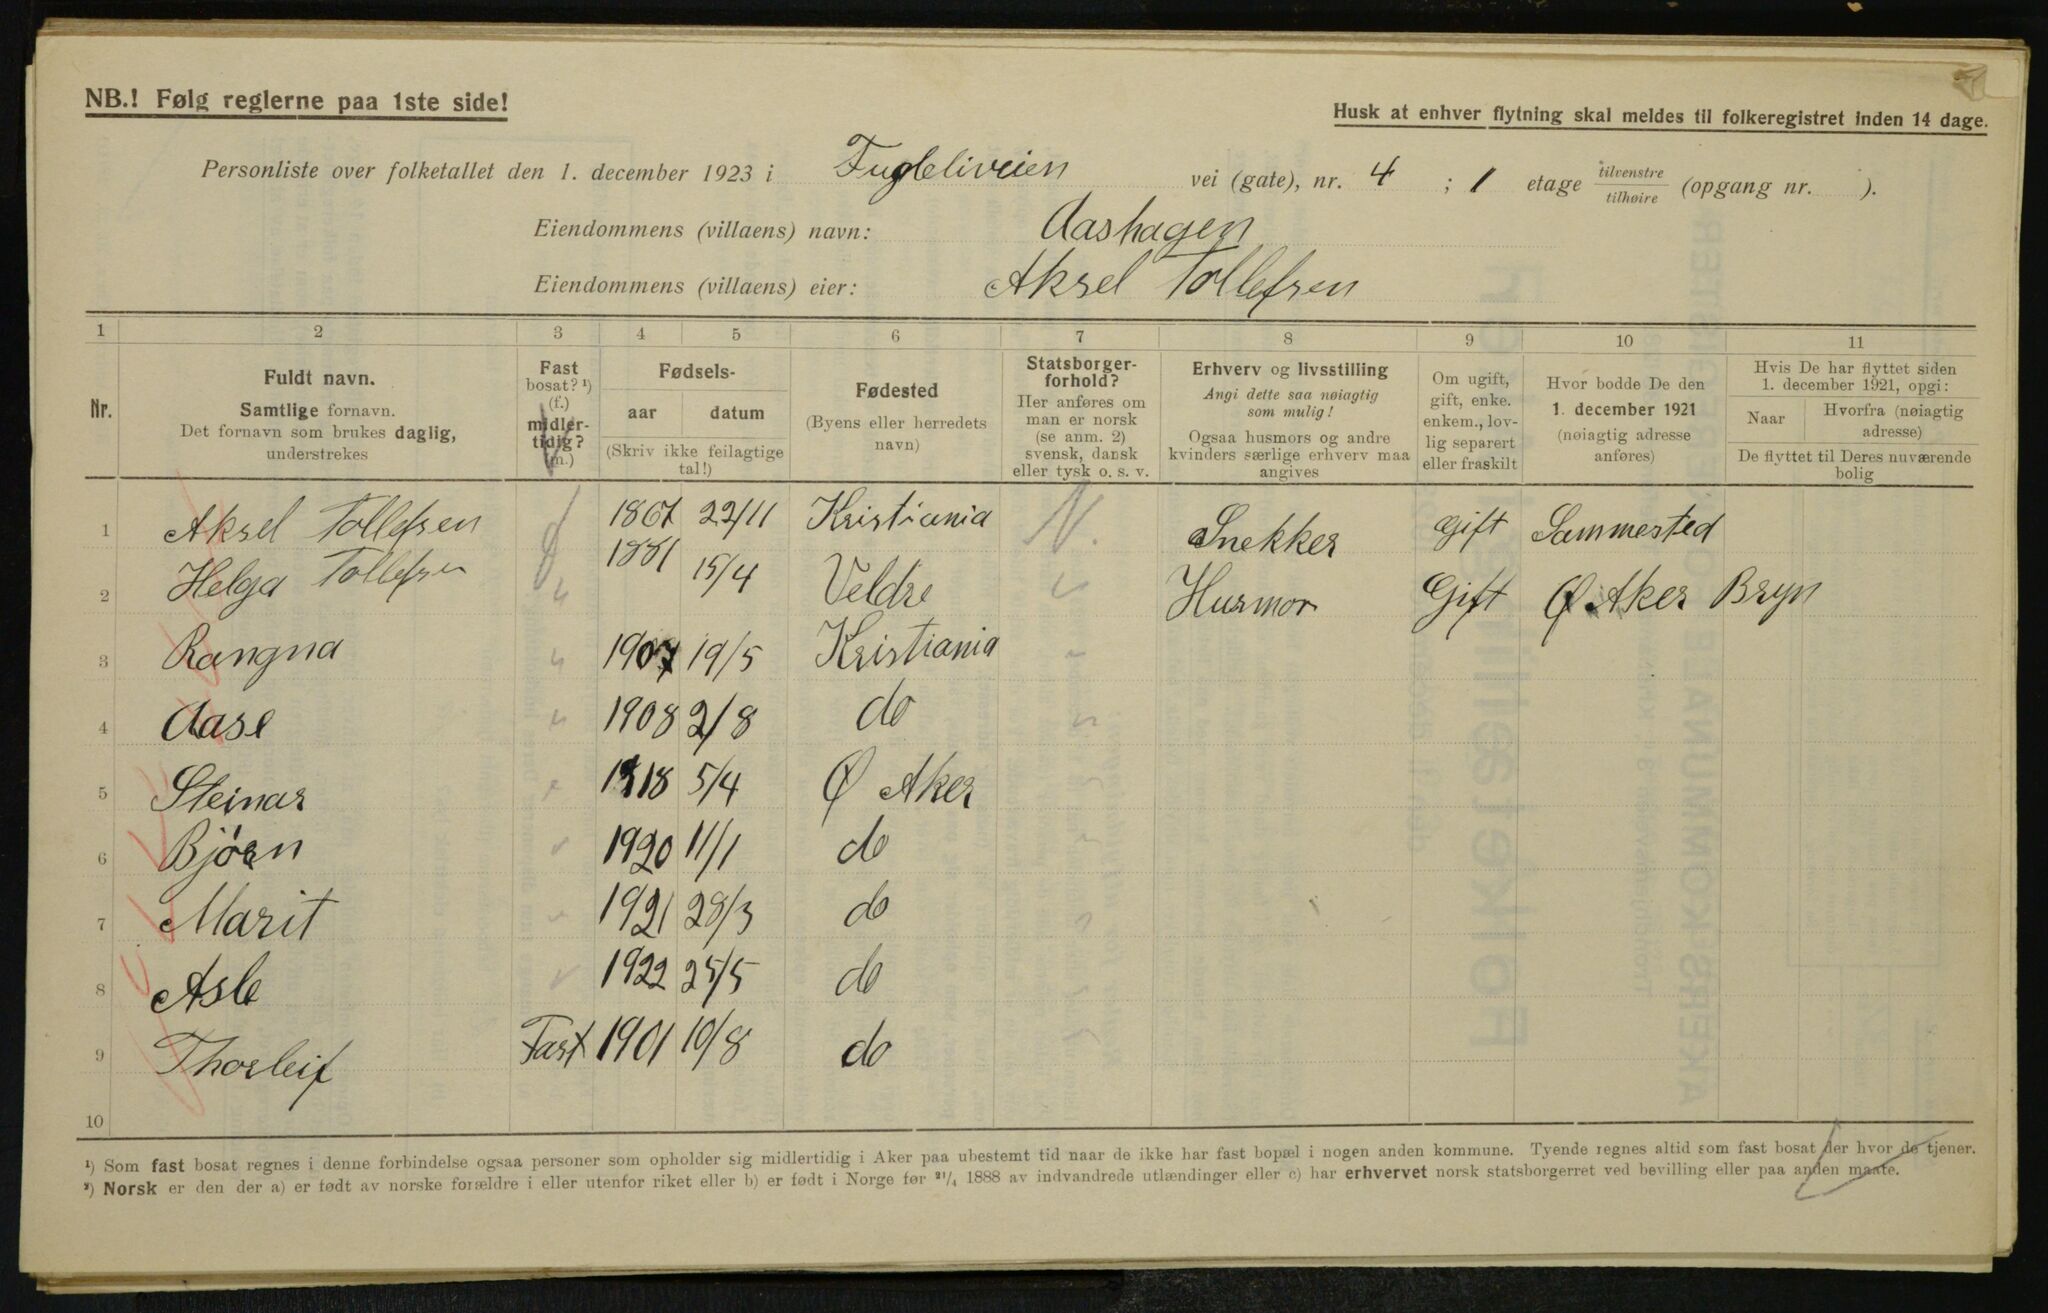 NB.! Følg reglerne paa 1ste side!
Husk at enhver flytning skal meldes til folkeregistret inden 14 dage.
Personliste over folketallet den 1. december 1923 i Fugleliveien vei (gate), nr. 4 ; 1 etage tilvenstre tilhøire (opgang nr. ).
Eiendommens (villaens) navn: Aashagen
Eiendommens (villaens) eier: Aksel Tollefsen
1 2 3 4 5 6 7 8 9 10 11
Nr.
Fuldt navn.
Samtlige fornavn.
Det fornavn som brukes daglig,
understrekes
Fast
bosat? ¹)
(f.)
midler-
tidig?
(m.)
Fødsels-
aar datum
(Skriv ikke feilagtige
tal!)
Fødested
(Byens eller herredets
navn)
Statsborger-
forhold?
Her anføres om
man er norsk
(se anm. 2)
svensk, dansk
eller tysk o. s. v.
Erhverv og livsstilling
Angi dette saa nøiagtig
som mulig!
Ogsaa husmors og andre
kvinders særlige erhverv maa
angives
Om ugift,
gift, enke.
enkem., lov-
lig separert
eller fraskilt
Hvor bodde De den
1. december 1921
(nøiagtig adresse
anføres)
Hvis De har flyttet siden
1. december 1921, opgi:
Naar Hvorfra (nøiagtig
adresse)
De flyttet til Deres nuværende
bolig
1 Aksel Tollefsen f 1867 22/11 Kristiania N. Snekker Gift Sammested
2 Helga Tollefsen " 1881 15/4 Veldre " Husmor Gift Ø Aker Bryn
3 Rangna " 1907 19/5 Kristiania "
4 Aase " 1908 2/8 do "
5 Steinar " 1918 5/4 Ø Aker
6 Bjørn " 1920 11/1 do
7 Marit " 1921 28/3 do
8 Asle " 1922 25/5 do
9 Thorleif Fast 1901 10/8 do
10
¹) Som fast bosat regnes i denne forbindelse ogsaa personer som opholder sig midlertidig i Aker paa ubestemt tid naar de ikke har fast bopæl i nogen anden kommune. Tyende regnes altid som fast bosat der hvor de tjener.
²) Norsk er den der a) er født av norske forældre i eller utenfor riket eller b) er født i Norge før ²¹/₄ 1888 av indvandrede utlændinger eller c) har erhvervet norsk statsborgerret ved bevilling eller paa anden maate.